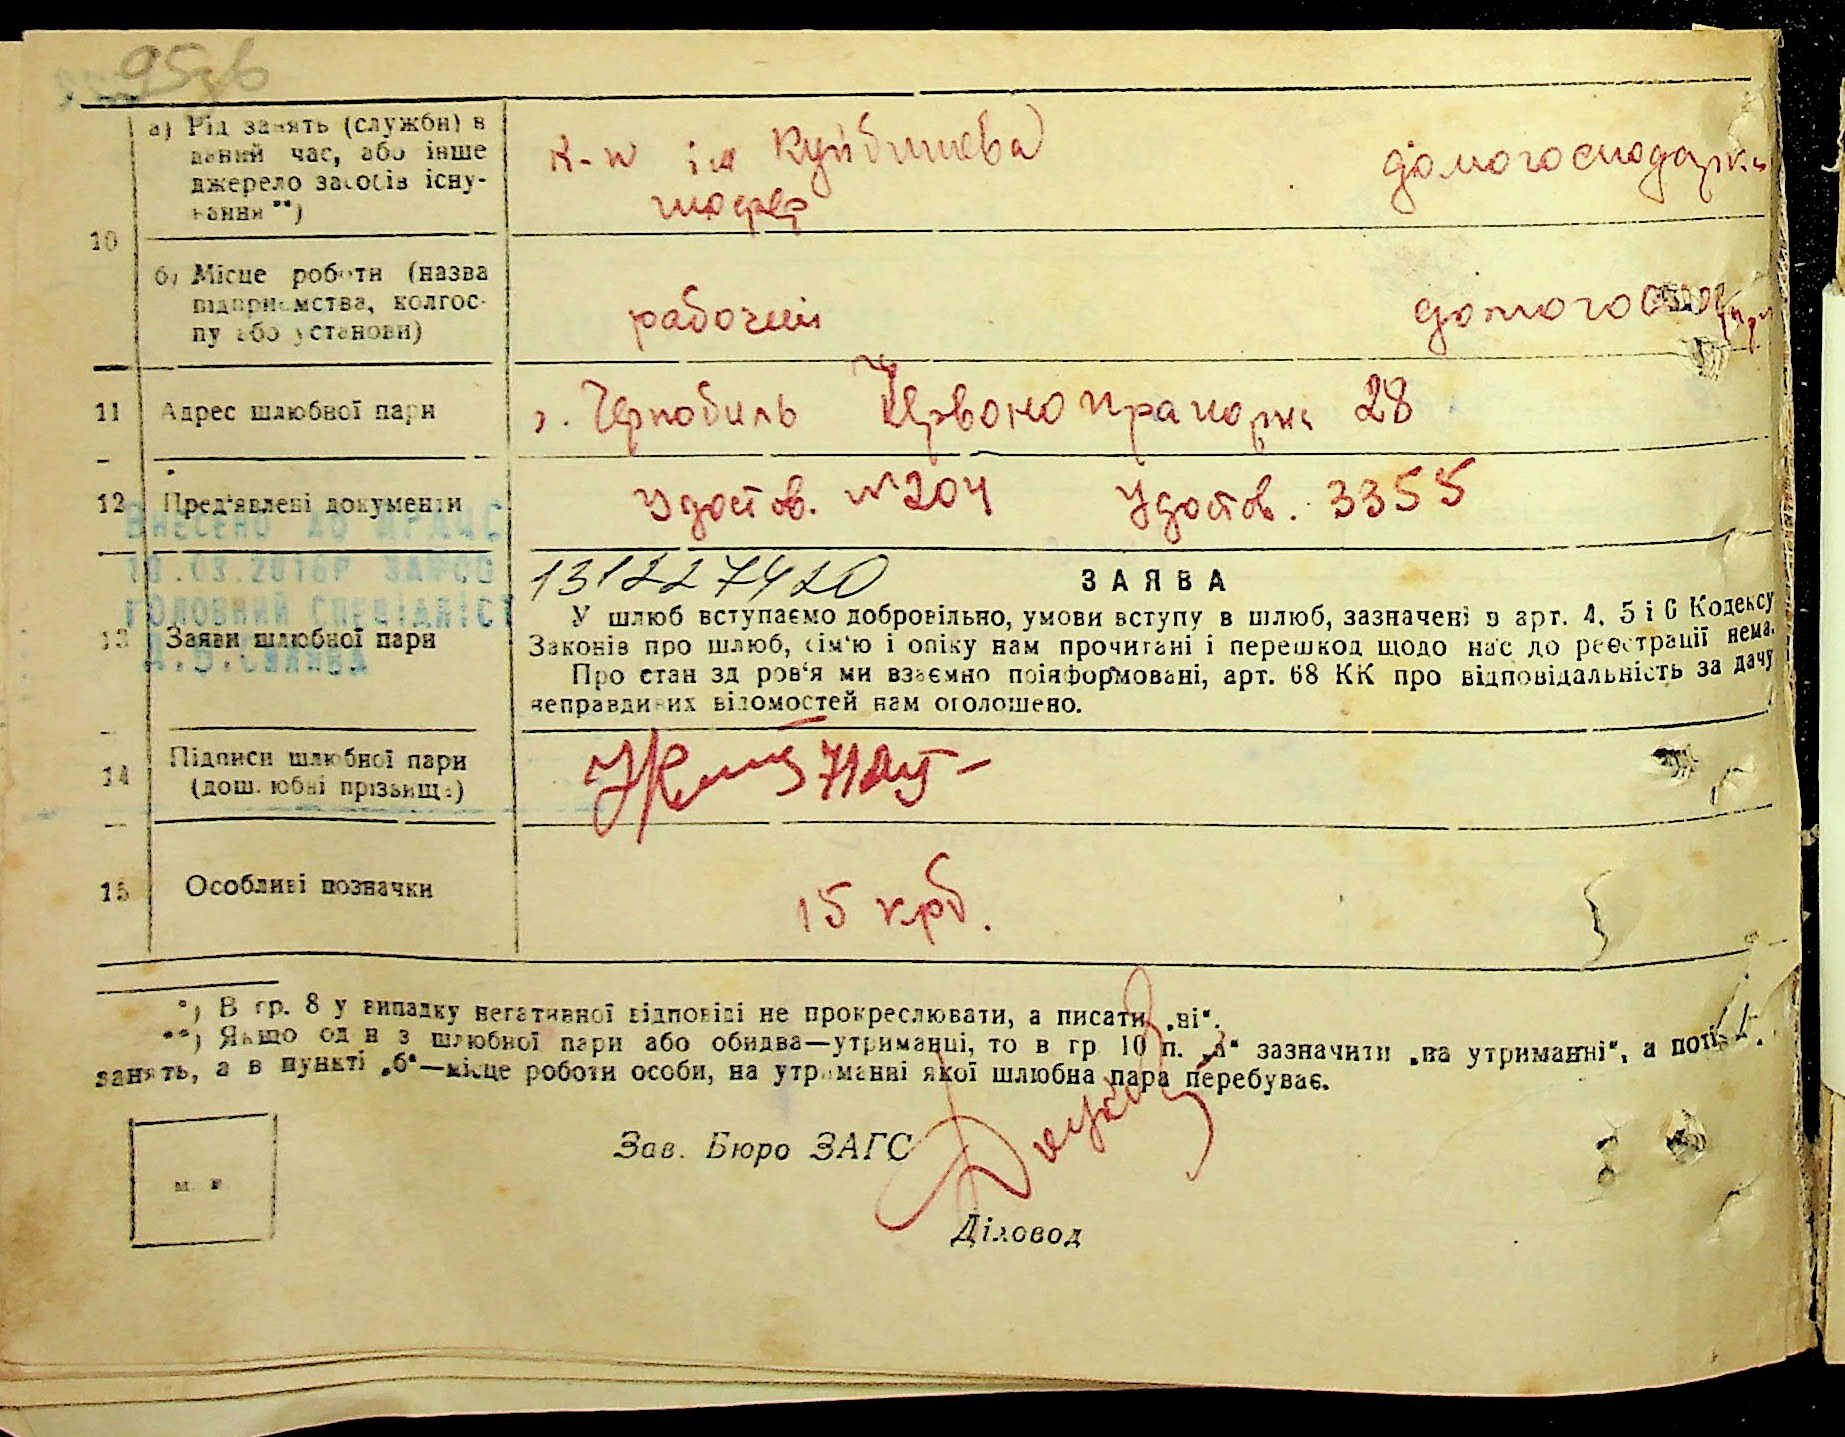 95зв
а) Рід занять (служби) в
даний час, або інше
джерело засобів існу-
вання **)
к-п ім Куйбишева
шофер
домогосподарка
10
б) Місце роботи (назва
підприємства, колгос-
пу або установи)
рабочий
11
Адрес шлюбної пари
г. Чернобиль Червонопрапорна 28
12
Пред'явлені документи
Удостов. №204 Удостов. 3355
ВНЕСЕНО ДО ДРАЦС
18.03.2016Р ЗАПСО
ГОЛОВНИЙ СПЕЦІАЛІСТ
13
Заяви шлюбної пари
13122 7420
ЗАЯВА
У шлюб вступаємо добровільно, умови вступу в шлюб, зазначені в арт. 4, 5 і 6 Кодексу
Законів про шлюб, сім'ю і опіку нам прочитані і перешкод щодо нас до реєстрації нема.
Про стан здоров'я ми взаємно поінформовані, арт. 68 КК про відповідальність за дачу
неправдивих відомостей нам оголошено.
14
Підписи шлюбної пари
(дошлюбні прізвища)
15
Особливі позначки
15 крб.
*) В гр. 8 у випадку негативної відповіді не прокреслювати, а писати „ні“.
**) Якщо один з шлюбної пари або обидва—утриманці, то в гр 10 п. „а“ зазначити „на утриманні“, а
занять, а в пункті „б“—місце роботи особи, на утриманні якої шлюбна пара перебуває.
Зав. Бюро ЗАГС
м. п.
Діловод